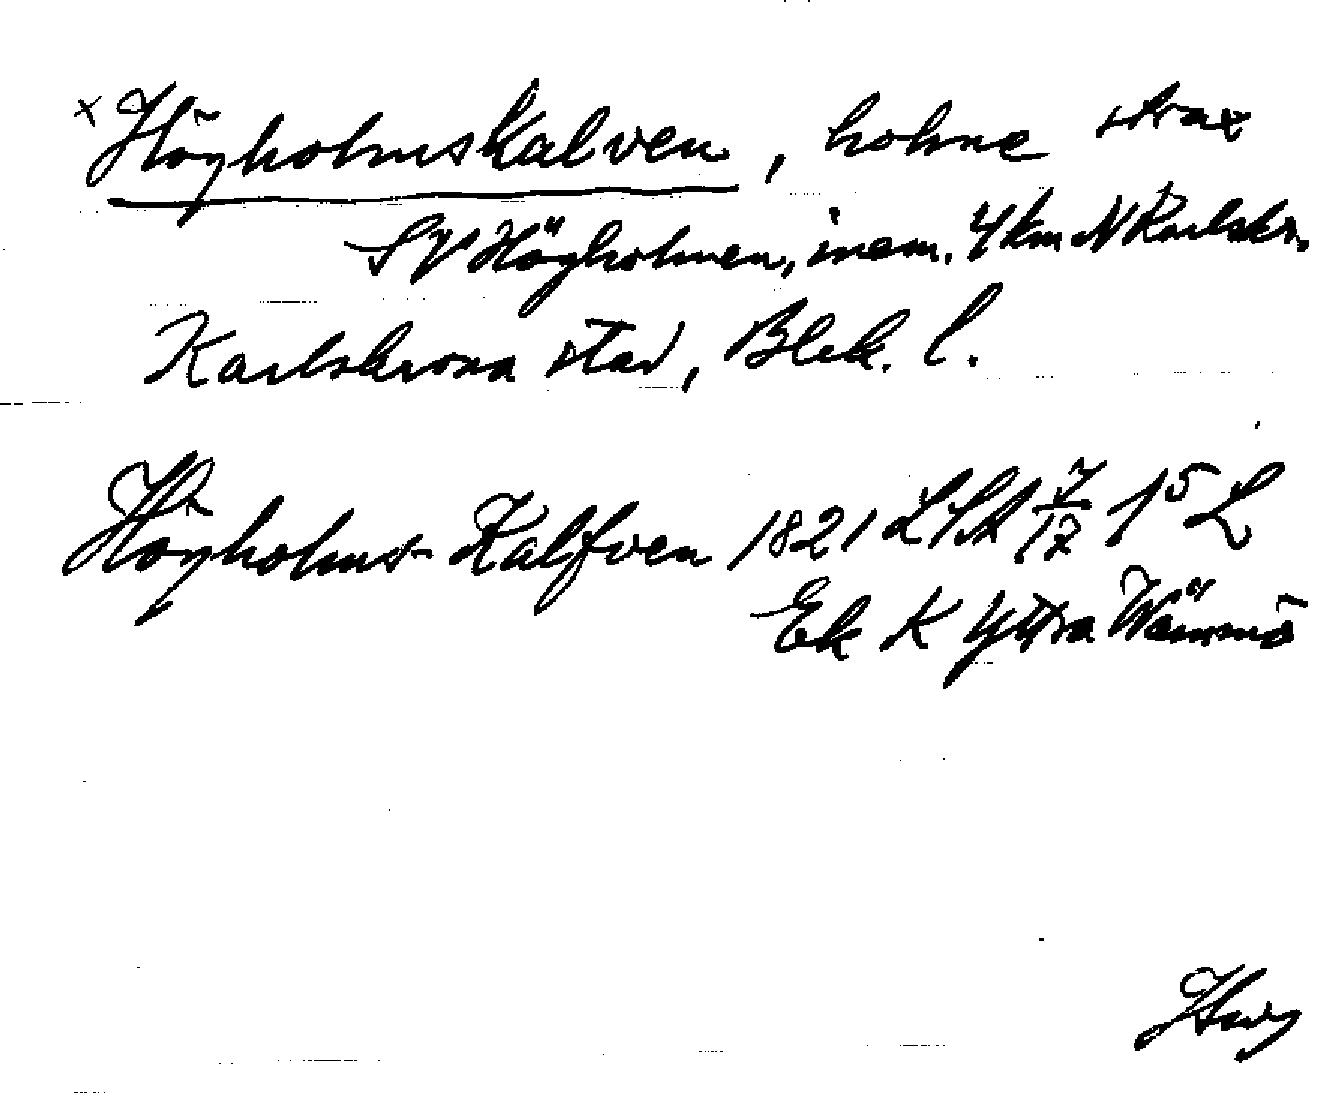 x Högholmskalven, holme strax
SV Högholmen, inom. 4 km N Karlskr.
Karlskrona stad, Blek. l.
Högholms- Kalfven 1821 LSA 7/17 1⁵ L
Ek K Yttra Wämmö